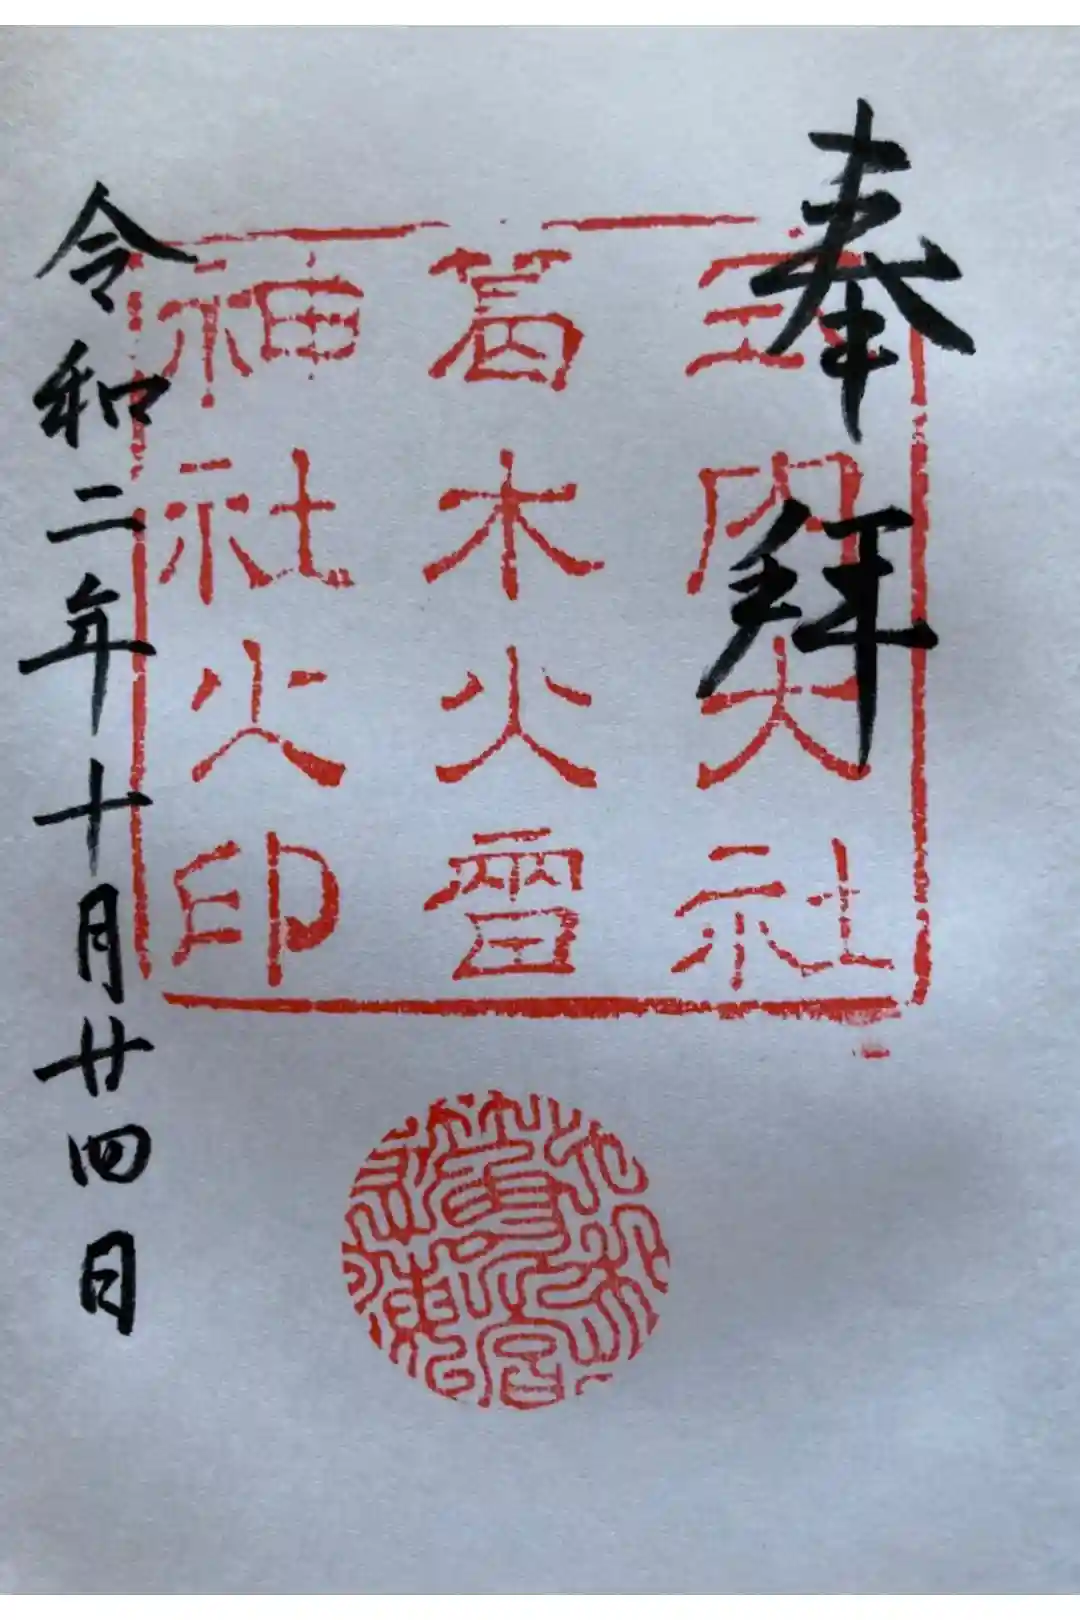 奉拝
式内大社
葛木火雷
神社火印
令和二年十月廿四日